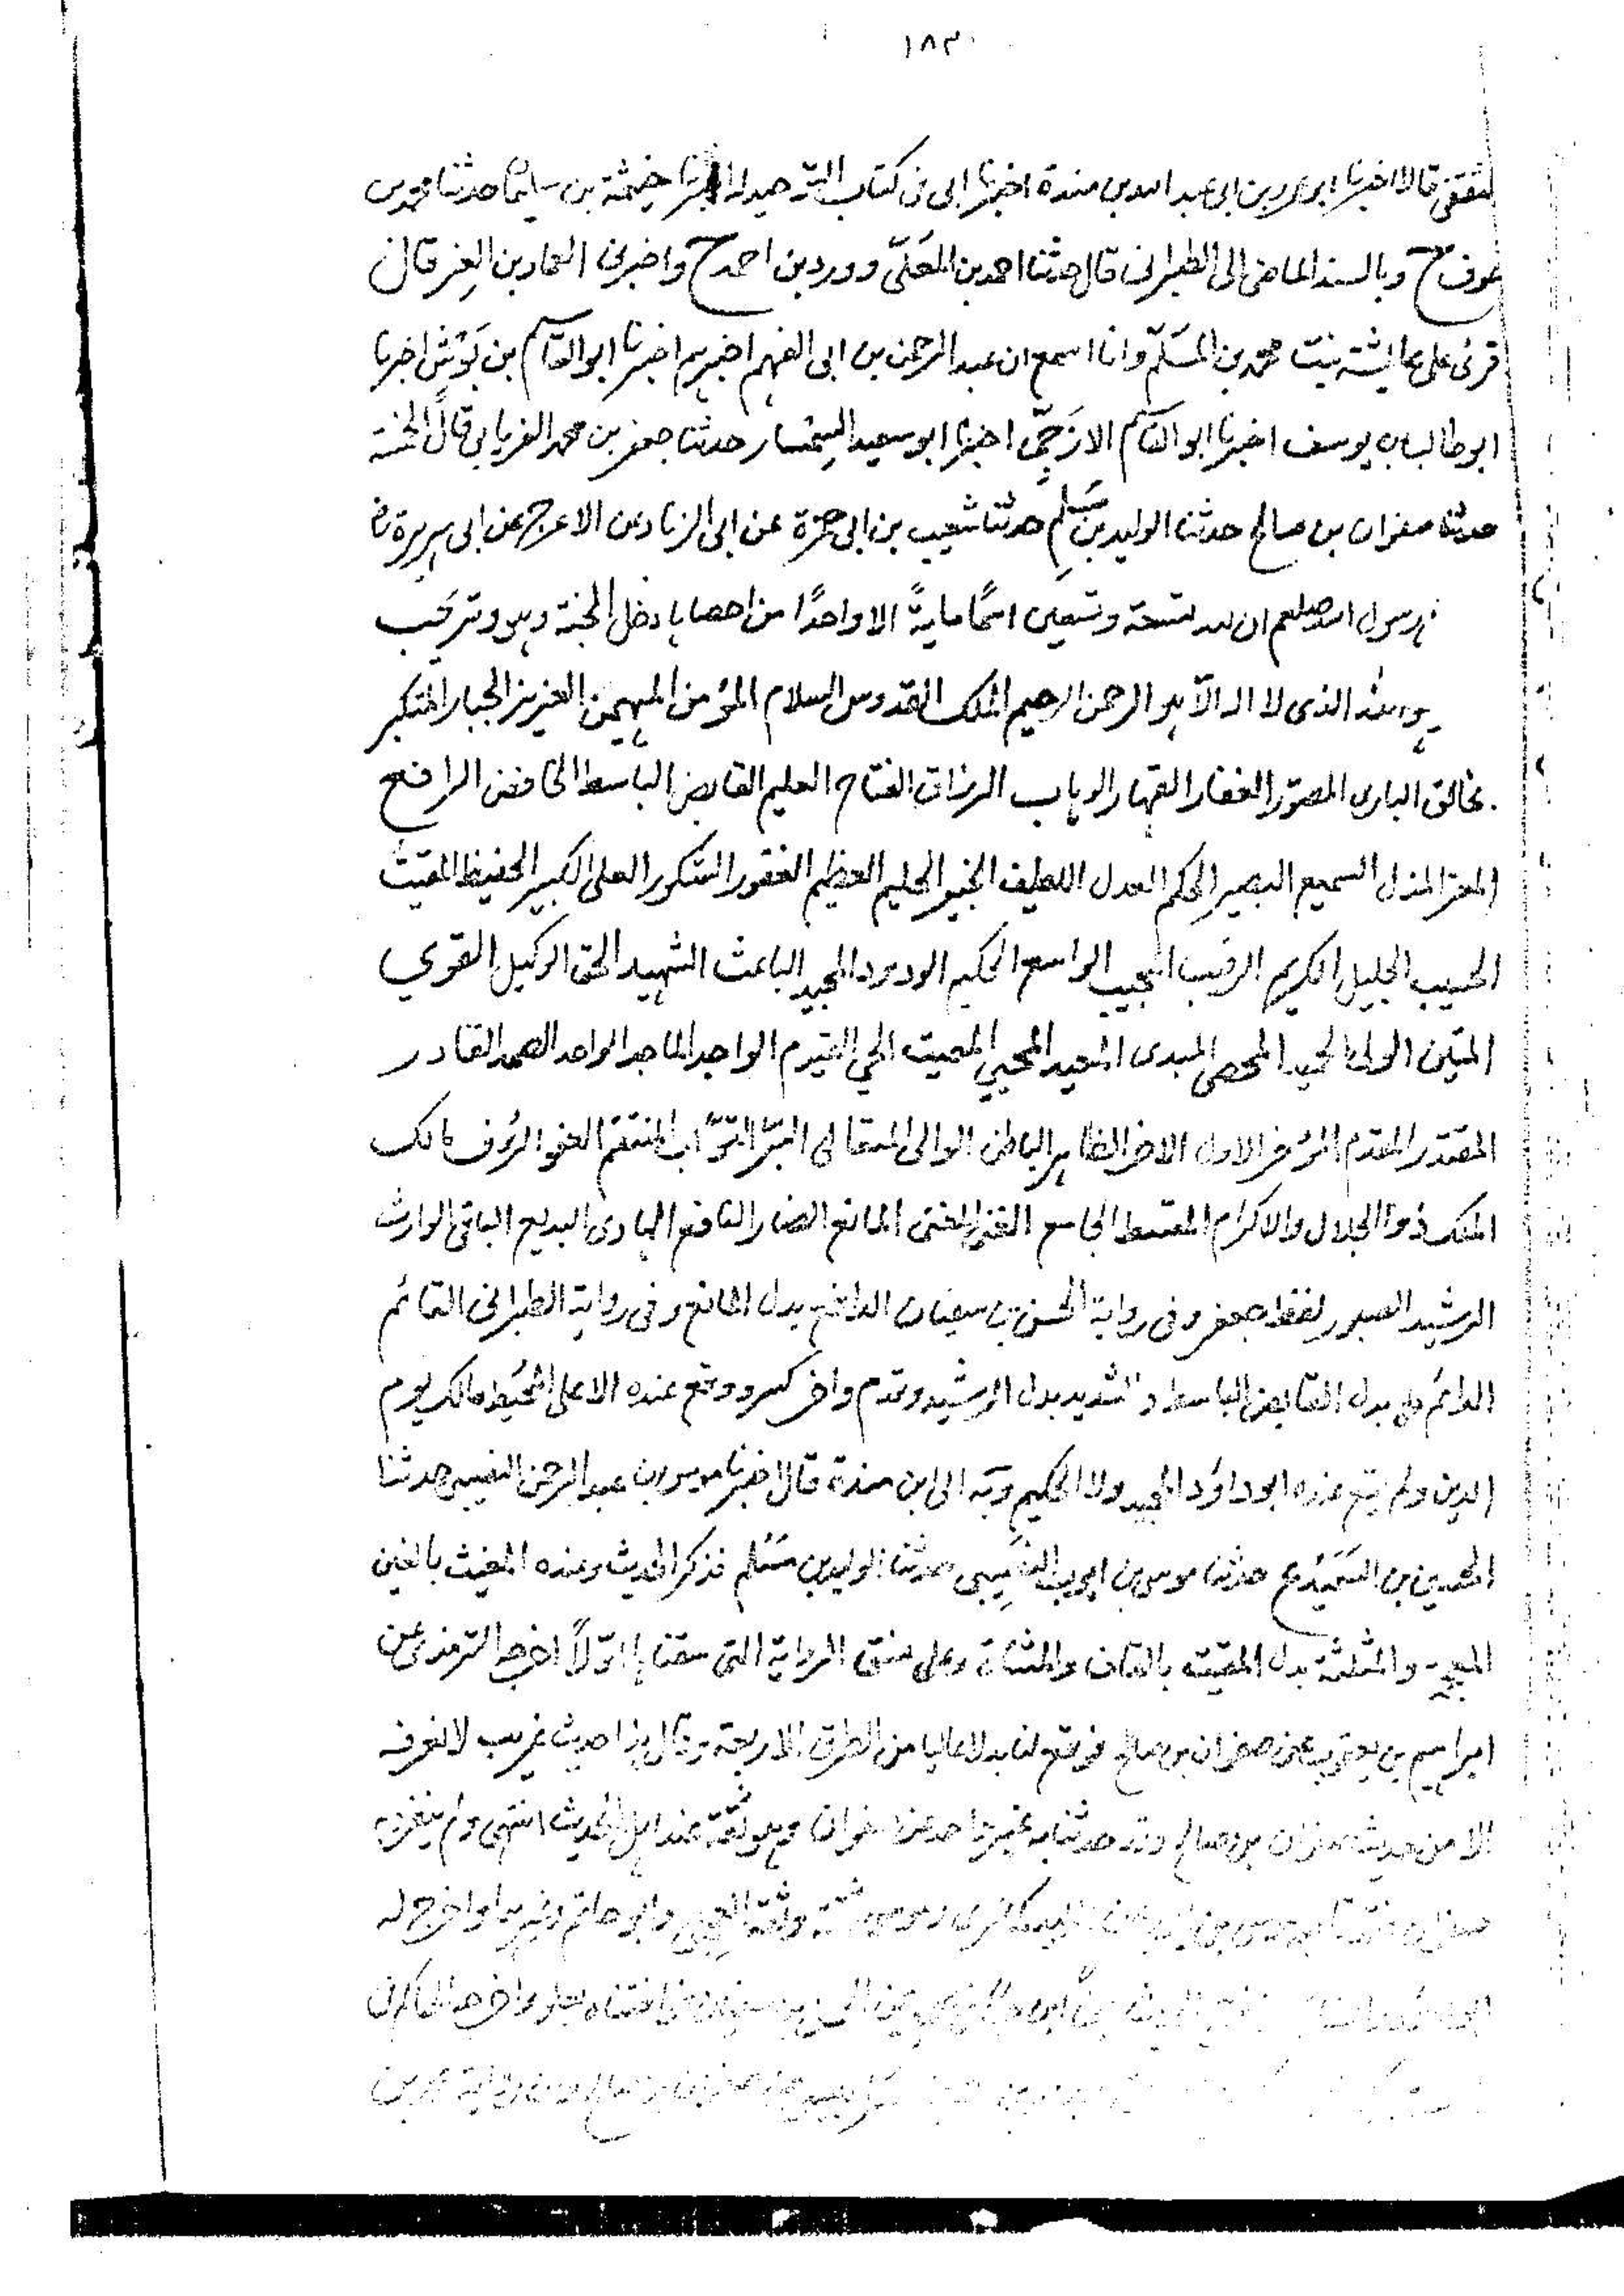 ١٨٣
الثقفي قالا اخبرنا ابو عمرو بن ابى عبد الله بن مندة اخبرنا ابى فى كتاب التوحيد له اخبرنا خيثمة بن سليمان حدثنا محمد بن
عوف ح وبالسند الماضى الى الطبرانى قال حدثنا احمد بن المعلّى وورد بن احمد ح واخبرنى العماد بن العِز قال
قرئ على عايشة بنت محمد بن المسلّم وانا اسمع ان عبد الرحمن بن ابى الفهم اخبرهم اخبرنا ابو القاسم بن بَوْش اخبرنا
ابو طالب بن يوسف اخبرنا ابو القاسم الازَجىّ اخبرنا ابو سعيد السِمْسار حدثنا جعفر بن محمد الفريابى قال الخمسة
حدثنا صفوان بن صالح حدثنا الوليد بن مسلم حدثنا شعيب بن ابى حمزة عن ابى الزناد عن الاعرج عن ابى هريرة رض
رسول الله صلعم ان لله تسعة وتسعين اسمًا مايةً الا واحدًا من احصاها دخل الجنة وهو وتر يحب
هو الله الذى لا اله الّا هو الرحمن الرحيم الملك القدوس السلام المؤمن المهيمن العزيز الجبار المتكبر
الخالق البارى المصوّر الغفار القهار الوهاب الرزاق الفتاح العليم القابض الباسط الخافض الرافع
المعز المذل السميع البصير الحكم العدل اللطيف الخبير الحليم العظيم الغفور الشكور العلى الكبير الحفيظ المقيت
الحسيب الجليل الكريم الرقيب المجيب الواسع الحكيم الودود المجيد الباعث الشهيد الحق الوكيل القوي
المتين الولى الحميد المحصى المبدى المعيد المحيي المميت الحي القيوم الواجد الماجد الواحد الصمد القادر
المقتدر المقدم المؤخر الاول الاخر الظاهر الباطن الوالى المتعالى البرّ التوّاب المنتقم العفو الرؤف مالك
الملك ذو الجلال والاكرام المقسط الجامع الغنى المغنى المانع الضار النافع الهادى البديع الباقى الوارث
الرشيد الصبور لفظ جعفر وفى رواية الحسن بن سفيان الدافع بدل المانع وفى رواية الطبرانى القائم
الدائم بدل القابض الباسط والشديد بدل الرشيد وقدم واخر كسرد ووقع عنده الاعلى المحيط مالك يوم
الدين ولم يقع عنده الودود المجيد ولا الحكيم وبه الى ابن مندة قال اخبرنا عبد الرحمن النصيبى حدثنا
الحسين بن السَمَيْدع حدثنا موسى بن ايوب النصِيبى حدثنا الوليد بن مسلم فذكر الحديث وعنده المغيث بالغين
المعجمة والمثلثة بدل المقيت بالقاف والمثناة وعلى نسق الرواية التى سقناها اوّلاً اخرجه الترمذى عن
ابراهيم بن يعقوب عن صفوان بن صالح فوقع لنا بدلا عاليا من الطرق الاربعة وقال هذا حديث غريب لا نعرفه
الا من حديث صفوان بن صالح وقد حدثنا به غير واحد عن صفوان وهو ثقة عند اهل الحديث انتهى ولم ينفرد
ثقة وثقه العجلى وابو حاتم وغيرهما واخرج له